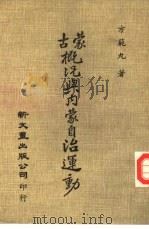 方範九 著
蒙古概況與內蒙自治運動
新文豐出版公司 印行